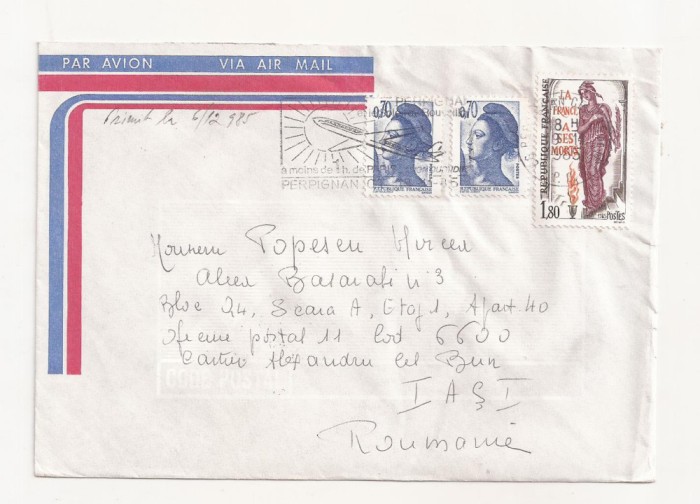 PAR AVION VIA AIR MAIL
Primit la 6/12 985
PERPIGNAN
à moins de 1 h. de PARIS
PERPIGNAN
0,70
REPUBLIQUE FRANÇAISE
0,70
REPUBLIQUE FRANÇAISE
REPUBLIQUE FRANÇAISE
LA
FRANCE
A
SES
MORTS
1,80 POSTES
Monsieur Popescu Mircea
Aleea Basarabi n° 3
Bloc 24, Scara A, Etaj 1, Apart 40
Oficiul postal 11 cod 6600
Cartier Alexandru cel Bun
IAŞI
Roumanie